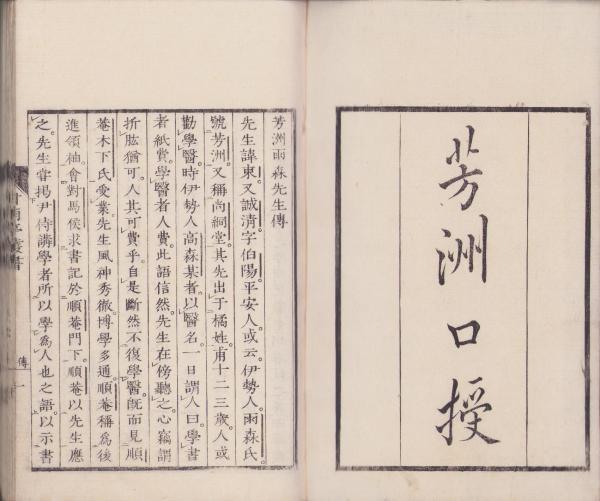 芳洲口授
芳洲雨森先生傳
先生諱東又誠清字伯陽平安人或云伊勢人雨森氏
號芳洲又稱尚絅堂其先出于橘姓甫十二三歲人或
勸學醫時伊勢人高森某者以醫名一日謂人曰學書
者紙費學醫者人費此語信然先生在傍聽之心竊謂
折肱猶可人其可費乎自是斷然不復學醫既而見順
菴木下氏受業先生風神秀徹博學多通順菴稱為後
進領袖會對馬侯求書記於順菴門下順菴以先生應
之先生嘗揭尹侍講學者所以學為人也之語以示書
甘雨亭叢書
傳
一